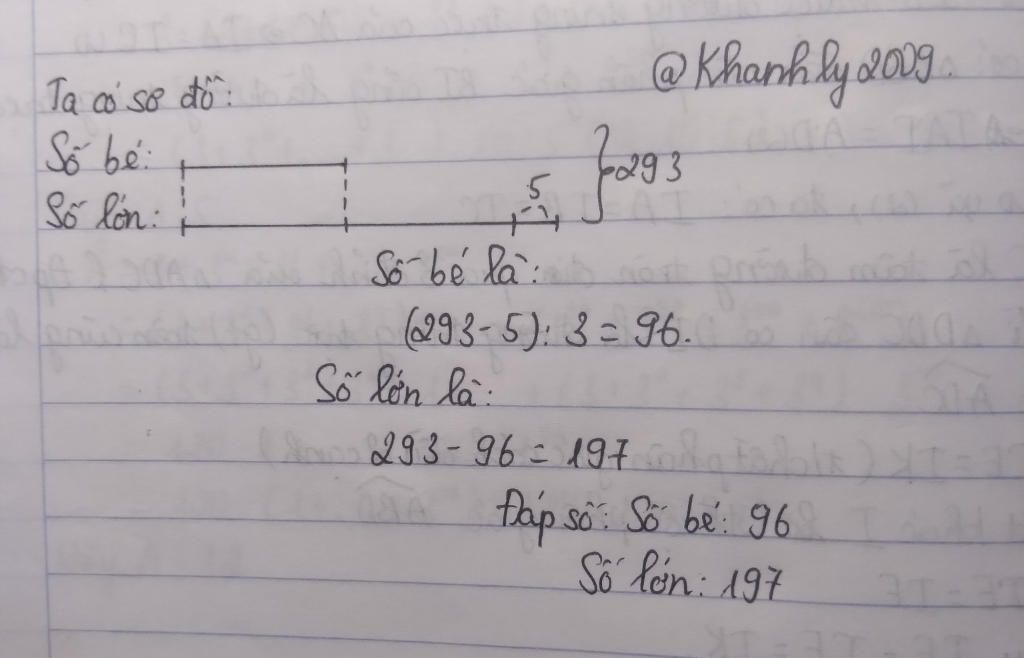 @Khanhly2009.
Ta có sơ đồ:
Số bé:
293
5
Số lớn:
Số bé là:
(293-5): 3 = 96.
Số lớn là:
293 - 96 = 197
Đáp số: Số bé: 96
Số lớn: 197